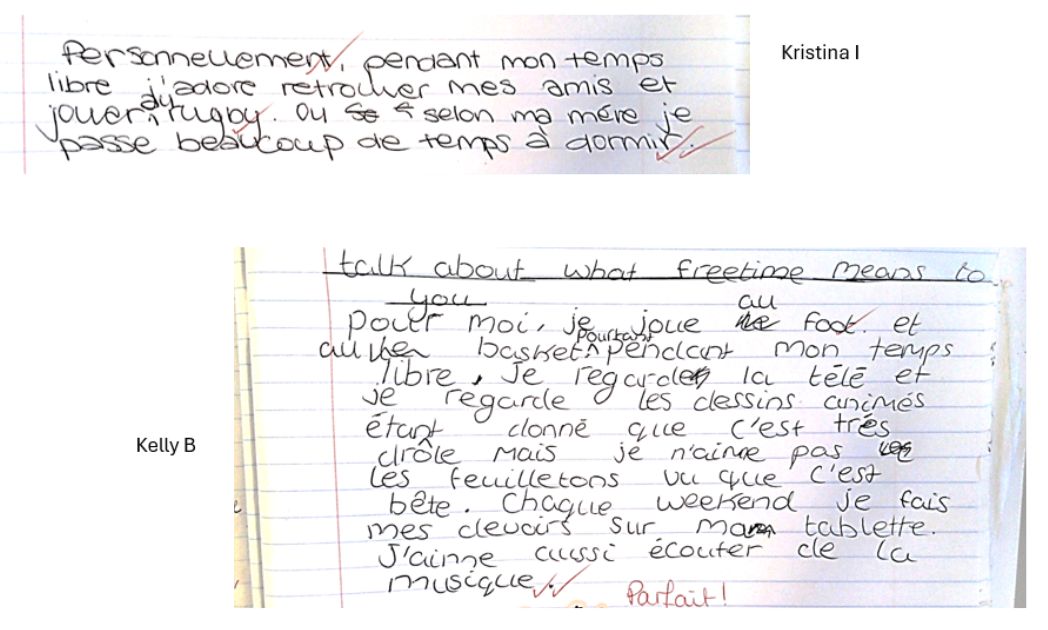 Personnellement, pendant mon temps
Kristina I
libre j'adore retrouver mes amis et
du
jouer rugby. Ou selon ma mére je
passe beaucoup de temps à dormir.
talk about what freetime means to
you
au
pour moi, je joue foot. et
Pourtant
au basket pendant mon temps
libre, je regarde la télé et
je regarde les dessins animés
étant donné que c'est trés
Kelly B
drôle mais je n'aime pas
les feuilletons vu que c'est
bête. Chaque weekend je fais
mes devoirs sur ma tablette.
J'aime aussi écouter de la
musique.
Parfait!